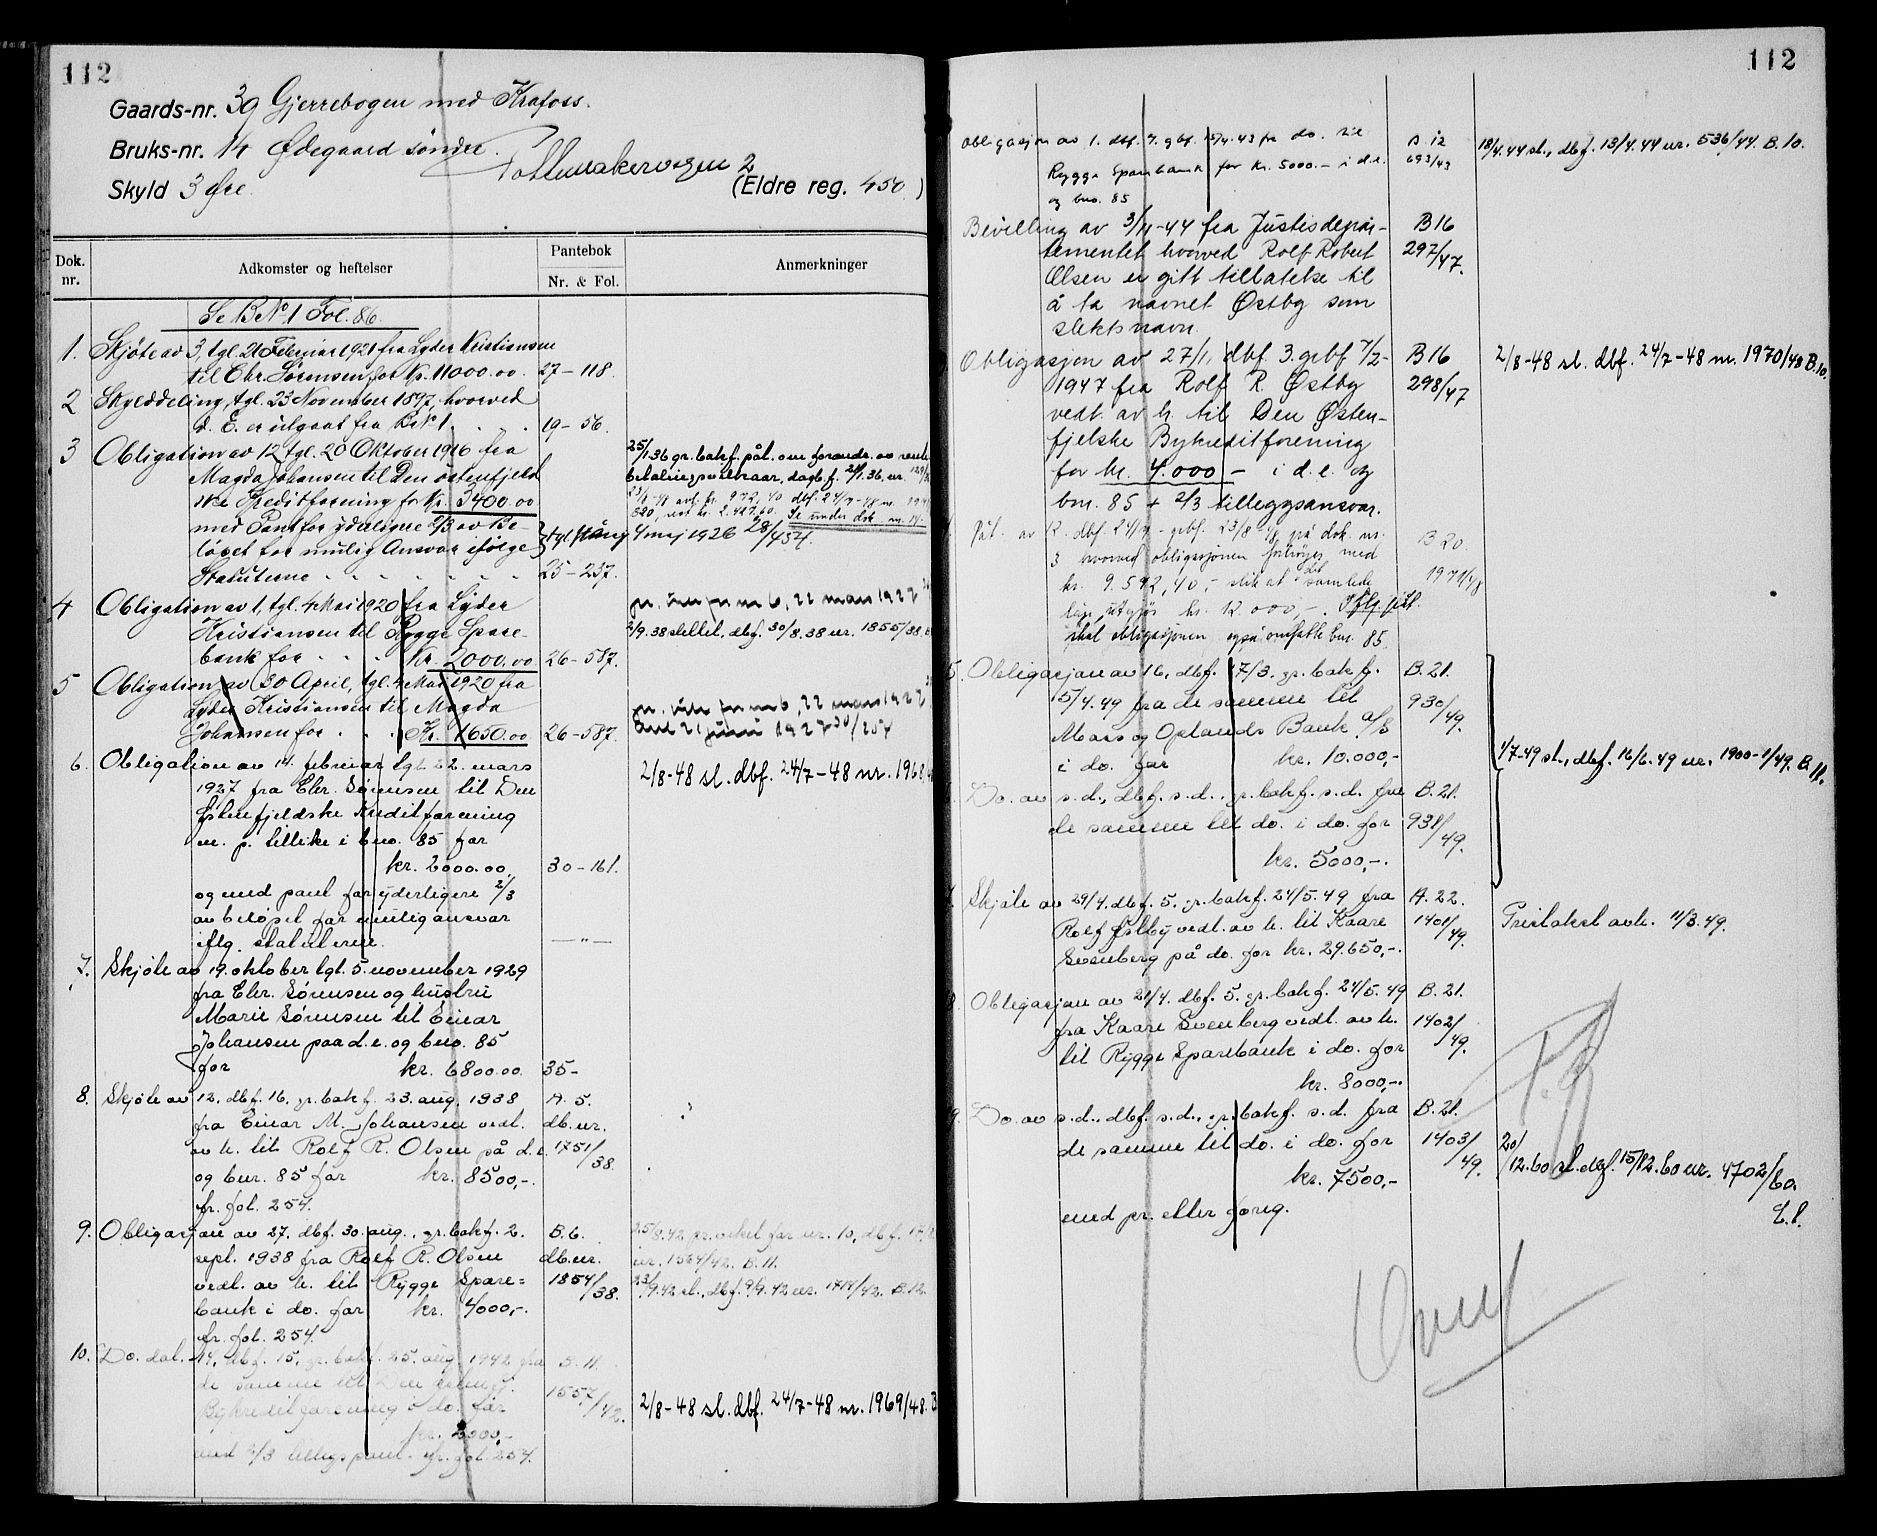 112
Gaards-nr. 39 Gjerrebogen med Krafoss.
Bruks-nr. 14 Ødegaard søndre.
Pottemakerveien 2
Skyld 3 Øre.
(Eldre reg. 450)
Dok. nr.
Adkomster og heftelser
Pantebok
Nr. & Fol.
Anmerkninger
Se B.Nº 1 Fol. 86.
1. Skjøte av 3, tgl. 21 Februar 1921 fra Lyder Kristiansen
til Chr. Sørensen for Kr. 11000.00. 27-118.
2 Skylddeling, tgl. 23 November 1897, hvorved
d. E. er utgaat fra B.Nº 1. . . 19-56.
3 Obligation av 12, tgl. 20 Oktober 1916 fra
Magda Johansen til Den østenfjeld
ske Kreditforening for Kr. 3400.00
med Pant for yderligere 2/3 av Be-
løpet for mulig Ansvar ifølge
Statuterne - - - - - 25-237.
25/1.36 gr. bokf. påt. om forandr. av rente
betalingsvilkaar, dagb.f. 21/1.36. nr.
Se under dok. nr. 14.
4 maj 1926 28/454.
4 Obligation av 1, tgl. 4 Mai 1920 fra Lyder
Kristiansen til Rygge Spare-
bank for - - Kr. 2000.00 26-587.
pr. vike for nr 6, 22 mars 1927
2/9.38 slettet, dbf. 30/8.38 nr. 1855/38.
5 Obligation av 30 April, tgl. 4 Mai 1920 fra
Lyder Kristiansen til Magda
Johansen for . . Kr. 1650.00 26-587.
pr. vike for nr 6, 22 mars 1927
Avl 21 juni 1927 30/254
6. Obligation av 14. februar tgl. 22. mars
1927 fra Chr. Sørensen til Den
Østenfjeldske Kreditforening
m. p. tillike i bno. 85 for
kr. 2000.00. 30-161.
og med pant for yderligere 2/3
av beløpet for mulig ansvar
iflg. statuterne. — " —
2/8-48 sl. dbf. 24/7-48 nr. 1968/48
7. Skjøte av 19. oktober tgl. 5. november 1929
fra Chr. Sørensen og hustru
Marie Sørensen til Einar
Johansen paa d.e. og bno. 85
for kr. 6800.00. 35-
8. Skjøte av 12. dbf. 16. gr. bokf. 23. aug. 1938 A. 5.
fra Einar M. Johansen vedt. db.nr.
av h. til Rolf R. Olsen på d.e. 1751/38.
og bnr. 85 for kr. 8500,-.
fr. fol. 254.
9. Obligasjon av 27. dbf. 30. aug., gr. bokf. 2. B. 6.
sept. 1938 fra Rolf R. Olsen db.nr.
vedt. av h. til Rygge Spare= 1854/38.
bank i do. for kr. 4000,-.
fr. fol. 254.
25/8.42 pr. veket for nr. 10, dbf.
nr. 1564/42. B. 11.
23/9.42 sl., dbf. 9/9.42 nr. 1714/42. B. 12.
10. Do. dat. 14, dbf. 15, gr. bokf. 25. aug. 1942 fra B. 11.
de samme til Den østenfj. 1557/42.
Bykreditforening i do. for
kr. 2000,-
med 2/3 tilleggspant. fr. fol. 254.
2/8-48 sl. dbf. 24/7-48 nr. 1969/48. B
112
obligasjon av 1. dbf. 7. gbf. 15/4.43 fra do. til B 12
Rygge Sparebank for kr. 5000.- i d.e. 693/43
og bno. 85
18/4.44 sl., dbf. 13/4.44 nr. 536/44 B. 10.
Bevilling av 3/11-44 fra Justisdepar- B 16
tementet hvorved Rolf Robert 297/47.
Olsen er gitt tillatelse til
å ta navnet Østby som
slektsnavn.
Obligasjon av 27/1, dbf. 3. grbf 7/2- B 16
1947 fra Rolf R. Østby 298/47
vedt. av h. til Den Østen-
fjelske Bykreditforening
for kr. 4.000 - i d.e. og
bnr. 85 + 2/3 tilleggsansvar.
2/8-48 sl. dbf. 24/7-48 nr. 1970/48 B.10.
Påt. av 12. dbf. 24/7 - grbf. 23/8-48 på dok nr. B 20.
3 hvorved obligasjonen forhøyes med 1971/48
kr. 9.592,40,- slik at det samlede
lån utgjør kr. 12.000,-. Iflg. påt.
skal obligasjonen også omfatte bnr. 85.
5. Obligasjon av 16, dbf. 17/3. gr. bokf. B. 21.
5/4.49 fra de samme til 930/49.
Moss og Oplands Bank A/S
i do. for kr. 10.000,-
Do. av s.d., dbf. s.d., gr. bokf. s.d. fra B. 21.
de samme til do. i do. for 931/49.
kr. 5000,-.
1/7-49 sl., dbf. 16/6.49 nr. 1900-1/49. B. 11.
Skjøte av 29/4. dbf. 5. gr. bokf. 24/5.49 fra A. 22.
Rolf Østby vedt. av h. til Kaare 1401/49.
Svenberg på do. for kr. 29.650,-.
Pristakst avh. 11/3.49.
8. Obligasjon av 29/4. dbf. 5. gr. bokf. 24/5.49 B. 21.
fra Kaare Svenberg vedt. av h. 1402/49.
til Rygge Sparebank i do. for
kr. 8000,-.
9. Do. av s.d., dbf. s.d., gr. bokf. s.d. fra B. 21.
de samme til do. i do. for 1403/49.
kr. 7500,-
med pr. etter forrig.
20/12.60 sl. dbf. 15/12.60 nr. 4702/60.